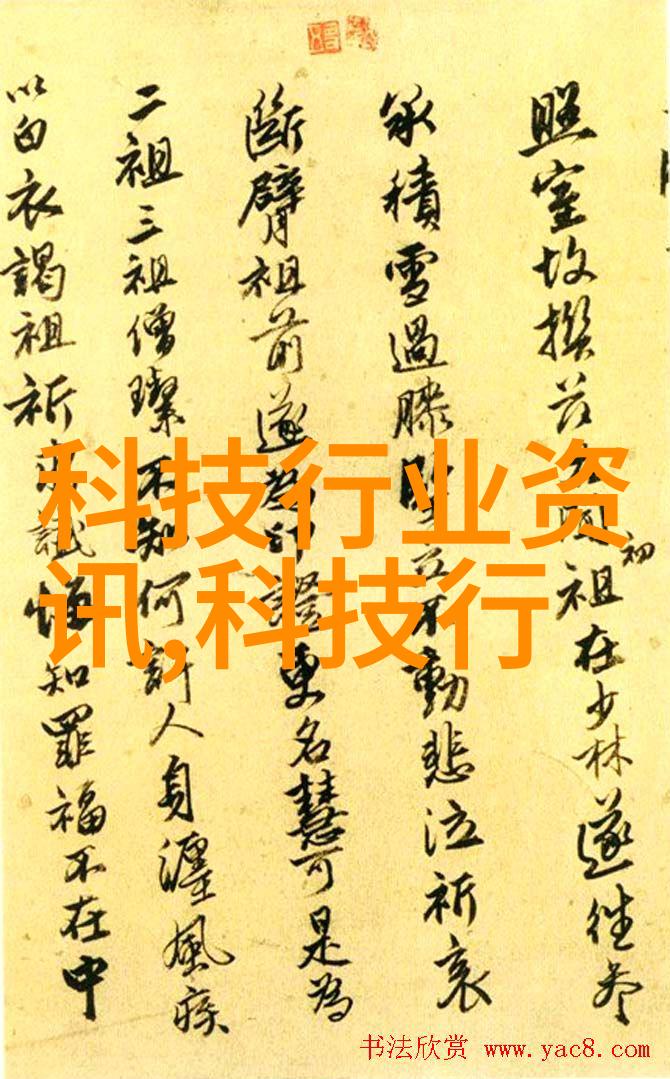 照室故撰祖初在少林遂往参
承積雪過膝堅立不動悲泣祈哀
斷臂祖前遂為印證更名慧可是為
二祖三祖僧璨不知何許人身纏風疾
以白衣謁祖祈求懺悔知罪福不在中
科技行业资
讯,科技行
书法欣赏 www.yac8.com